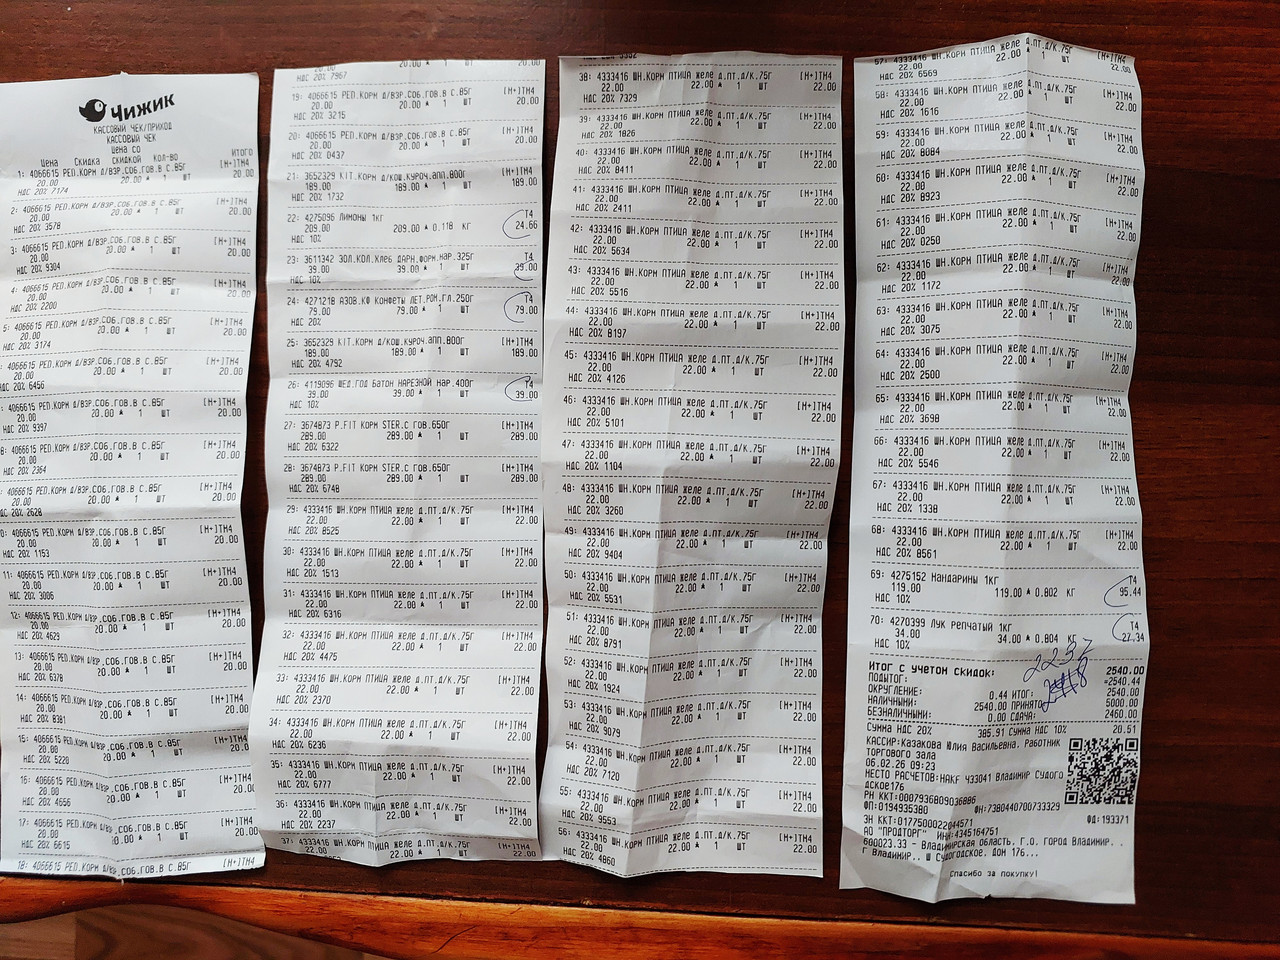 Чижик
КАССОВЫЙ ЧЕК/ПРИХОД
КАССОВЫЙ ЧЕК
Цена со
Цена Скидка скидкой Кол-во Итого
1: 4066615 РЕП.КОРМ Д/ВЗР.СОБ.ГОВ.В С.85Г [М+]ТМ4
20.00 20.00 ▲ 1 ШТ 20.00
НДС 20% 7174
2: 4066615 РЕП.КОРМ Д/ВЗР.СОБ.ГОВ.В С.85Г [М+]ТМ4
20.00 20.00 ▲ 1 ШТ 20.00
НДС 20% 3578
3: 4066615 РЕП.КОРМ Д/ВЗР.СОБ.ГОВ.В С.85Г [М+]ТМ4
20.00 20.00 ▲ 1 ШТ 20.00
НДС 20% 9304
4: 4066615 РЕП.КОРМ Д/ВЗР.СОБ.ГОВ.В С.85Г [М+]ТМ4
20.00 20.00 ▲ 1 ШТ 20.00
НДС 20% 2200
5: 4066615 РЕП.КОРМ Д/ВЗР.СОБ.ГОВ.В С.85Г [М+]ТМ4
20.00 20.00 ▲ 1 ШТ 20.00
НДС 20% 3174
: 4066615 РЕП.КОРМ Д/ВЗР.СОБ.ГОВ.В С.85Г [М+]ТМ4
20.00 20.00 ▲ 1 ШТ 20.00
НДС 20% 6456
: 4066615 РЕП.КОРМ Д/ВЗР.СОБ.ГОВ.В С.85Г [М+]ТМ4
20.00 20.00 ▲ 1 ШТ 20.00
НДС 20% 9397
8: 4066615 РЕП.КОРМ Д/ВЗР.СОБ.ГОВ.В С.85Г [М+]ТМ4
20.00 20.00 ▲ 1 ШТ 20.00
НДС 20% 2364
: 4066615 РЕП.КОРМ Д/ВЗР.СОБ.ГОВ.В С.85Г [М+]ТМ4
20.00 20.00 ▲ 1 ШТ 20.00
НДС 20% 2628
0: 4066615 РЕП.КОРМ Д/ВЗР.СОБ.ГОВ.В С.85Г [М+]ТМ4
20.00 20.00 ▲ 1 ШТ 20.00
НДС 20% 1153
11: 4066615 РЕП.КОРМ Д/ВЗР.СОБ.ГОВ.В С.85Г [М+]ТМ4
20.00 20.00 ▲ 1 ШТ 20.00
НДС 20% 3006
12: 4066615 РЕП.КОРМ Д/ВЗР.СОБ.ГОВ.В С.85Г [М+]ТМ4
20.00 20.00 ▲ 1 ШТ 20.00
НДС 20% 4629
13: 4066615 РЕП.КОРМ Д/ВЗР.СОБ.ГОВ.В С.85Г [М+]ТМ4
20.00 20.00 ▲ 1 ШТ 20.00
НДС 20% 6378
14: 4066615 РЕП.КОРМ Д/ВЗР.СОБ.ГОВ.В С.85Г [М+]ТМ4
20.00 20.00 ▲ 1 ШТ 20.00
НДС 20% 8381
15: 4066615 РЕП.КОРМ Д/ВЗР.СОБ.ГОВ.В С.85Г [М+]ТМ4
20.00 20.00 ▲ 1 ШТ 20.00
НДС 20% 5220
16: 4066615 РЕП.КОРМ Д/ВЗР.СОБ.ГОВ.В С.85Г [М+]ТМ4
20.00 20.00 ▲ 1 ШТ 20.00
НДС 20% 4656
17: 4066615 РЕП.КОРМ Д/ВЗР.СОБ.ГОВ.В С.85Г [М+]ТМ4
20.00 20.00 ▲ 1 ШТ 20.00
НДС 20% 6615
18: 4066615 РЕП.КОРМ Д/ВЗР.СОБ.ГОВ.В С.85Г [М+]ТМ4
20.00 20.00 ▲ 1 ШТ 20.00
НДС 20% 7967
19: 4066615 РЕП.КОРМ Д/ВЗР.СОБ.ГОВ.В С.85Г [М+]ТМ4
20.00 20.00 ▲ 1 ШТ 20.00
НДС 20% 3215
20: 4066615 РЕП.КОРМ Д/ВЗР.СОБ.ГОВ.В С.85Г [М+]ТМ4
20.00 20.00 ▲ 1 ШТ 20.00
НДС 20% 0437
21: 3652329 KIT.КОРМ Д/КОШ.КУРОЧ.АПП.800г [М+]ТМ4
189.00 189.00 ▲ 1 ШТ 189.00
НДС 20% 1732
22: 4275096 ЛИМОНЫ 1КГ Т4
209.00 209.00 ▲ 0.118 КГ 24.66
НДС 10%
23: 3611342 ЗОЛ.КОЛ.Хлеб ДАРН.форм.нар.325г Т4
39.00 39.00 ▲ 1 ШТ 39.00
НДС 10%
24: 4271218 АЗОВ.КФ КОНФЕТЫ ЛЕТ.РОМ.ГЛ.250г Т4
79.00 79.00 ▲ 1 ШТ 79.00
НДС 20%
25: 3652329 KIT.КОРМ Д/КОШ.КУРОЧ.АПП.800г [М+]ТМ4
189.00 189.00 ▲ 1 ШТ 189.00
НДС 20% 4792
26: 4119096 ЩЕД.ГОД Батон НАРЕЗНОЙ нар.400г Т4
39.00 39.00 ▲ 1 ШТ 39.00
НДС 10%
27: 3674873 P.FIT КОРМ STER.С ГОВ.650г [М+]ТМ4
289.00 289.00 ▲ 1 ШТ 289.00
НДС 20% 6322
28: 3674873 P.FIT КОРМ STER.С ГОВ.650г [М+]ТМ4
289.00 289.00 ▲ 1 ШТ 289.00
НДС 20% 6748
29: 4333416 ШН.КОРМ ПТИЦА желе д.пт.д/к.75г [М+]ТМ4
22.00 22.00 ▲ 1 ШТ 22.00
НДС 20% 8525
30: 4333416 ШН.КОРМ ПТИЦА желе д.пт.д/к.75г [М+]ТМ4
22.00 22.00 ▲ 1 ШТ 22.00
НДС 20% 1513
31: 4333416 ШН.КОРМ ПТИЦА желе д.пт.д/к.75г [М+]ТМ4
22.00 22.00 ▲ 1 ШТ 22.00
НДС 20% 6316
32: 4333416 ШН.КОРМ ПТИЦА желе д.пт.д/к.75г [М+]ТМ4
22.00 22.00 ▲ 1 ШТ 22.00
НДС 20% 4475
33: 4333416 ШН.КОРМ ПТИЦА желе д.пт.д/к.75г [М+]ТМ4
22.00 22.00 ▲ 1 ШТ 22.00
НДС 20% 2370
34: 4333416 ШН.КОРМ ПТИЦА желе д.пт.д/к.75г [М+]ТМ4
22.00 22.00 ▲ 1 ШТ 22.00
НДС 20% 6236
35: 4333416 ШН.КОРМ ПТИЦА желе д.пт.д/к.75г [М+]ТМ4
22.00 22.00 ▲ 1 ШТ 22.00
НДС 20% 6777
36: 4333416 ШН.КОРМ ПТИЦА желе д.пт.д/к.75г [М+]ТМ4
22.00 22.00 ▲ 1 ШТ 22.00
НДС 20% 2237
37: 4333416 ШН.КОРМ ПТИЦА желе д.пт.д/к.75г [М+]ТМ4
22.00 22.00 ▲ 1 ШТ 22.00
38: 4333416 ШН.КОРМ ПТИЦА желе д.пт.д/к.75г [М+]ТМ4
22.00 22.00 ▲ 1 ШТ 22.00
НДС 20% 7329
39: 4333416 ШН.КОРМ ПТИЦА желе д.пт.д/к.75г [М+]ТМ4
22.00 22.00 ▲ 1 ШТ 22.00
НДС 20% 1826
40: 4333416 ШН.КОРМ ПТИЦА желе д.пт.д/к.75г [М+]ТМ4
22.00 22.00 ▲ 1 ШТ 22.00
НДС 20% 8411
41: 4333416 ШН.КОРМ ПТИЦА желе д.пт.д/к.75г [М+]ТМ4
22.00 22.00 ▲ 1 ШТ 22.00
НДС 20% 2411
42: 4333416 ШН.КОРМ ПТИЦА желе д.пт.д/к.75г [М+]ТМ4
22.00 22.00 ▲ 1 ШТ 22.00
НДС 20% 5634
43: 4333416 ШН.КОРМ ПТИЦА желе д.пт.д/к.75г [М+]ТМ4
22.00 22.00 ▲ 1 ШТ 22.00
НДС 20% 5516
44: 4333416 ШН.КОРМ ПТИЦА желе д.пт.д/к.75г [М+]ТМ4
22.00 22.00 ▲ 1 ШТ 22.00
НДС 20% 8197
45: 4333416 ШН.КОРМ ПТИЦА желе д.пт.д/к.75г [М+]ТМ4
22.00 22.00 ▲ 1 ШТ 22.00
НДС 20% 4126
46: 4333416 ШН.КОРМ ПТИЦА желе д.пт.д/к.75г [М+]ТМ4
22.00 22.00 ▲ 1 ШТ 22.00
НДС 20% 5101
47: 4333416 ШН.КОРМ ПТИЦА желе д.пт.д/к.75г [М+]ТМ4
22.00 22.00 ▲ 1 ШТ 22.00
НДС 20% 1104
48: 4333416 ШН.КОРМ ПТИЦА желе д.пт.д/к.75г [М+]ТМ4
22.00 22.00 ▲ 1 ШТ 22.00
НДС 20% 3260
49: 4333416 ШН.КОРМ ПТИЦА желе д.пт.д/к.75г [М+]ТМ4
22.00 22.00 ▲ 1 ШТ 22.00
НДС 20% 9404
50: 4333416 ШН.КОРМ ПТИЦА желе д.пт.д/к.75г [М+]ТМ4
22.00 22.00 ▲ 1 ШТ 22.00
НДС 20% 5531
51: 4333416 ШН.КОРМ ПТИЦА желе д.пт.д/к.75г [М+]ТМ4
22.00 22.00 ▲ 1 ШТ 22.00
НДС 20% 8791
52: 4333416 ШН.КОРМ ПТИЦА желе д.пт.д/к.75г [М+]ТМ4
22.00 22.00 ▲ 1 ШТ 22.00
НДС 20% 1924
53: 4333416 ШН.КОРМ ПТИЦА желе д.пт.д/к.75г [М+]ТМ4
22.00 22.00 ▲ 1 ШТ 22.00
НДС 20% 9079
54: 4333416 ШН.КОРМ ПТИЦА желе д.пт.д/к.75г [М+]ТМ4
22.00 22.00 ▲ 1 ШТ 22.00
НДС 20% 7120
55: 4333416 ШН.КОРМ ПТИЦА желе д.пт.д/к.75г [М+]ТМ4
22.00 22.00 ▲ 1 ШТ 22.00
НДС 20% 9553
56: 4333416 ШН.КОРМ ПТИЦА желе д.пт.д/к.75г [М+]ТМ4
22.00 22.00 ▲ 1 ШТ 22.00
НДС 20% 4860
57: 4333416 ШН.КОРМ ПТИЦА желе д.пт.д/к.75г [М+]ТМ4
22.00 22.00 ▲ 1 ШТ 22.00
НДС 20% 6569
58: 4333416 ШН.КОРМ ПТИЦА желе д.пт.д/к.75г [М+]ТМ4
22.00 22.00 ▲ 1 ШТ 22.00
НДС 20% 1616
59: 4333416 ШН.КОРМ ПТИЦА желе д.пт.д/к.75г [М+]ТМ4
22.00 22.00 ▲ 1 ШТ 22.00
НДС 20% 8084
60: 4333416 ШН.КОРМ ПТИЦА желе д.пт.д/к.75г [М+]ТМ4
22.00 22.00 ▲ 1 ШТ 22.00
НДС 20% 8923
61: 4333416 ШН.КОРМ ПТИЦА желе д.пт.д/к.75г [М+]ТМ4
22.00 22.00 ▲ 1 ШТ 22.00
НДС 20% 0250
62: 4333416 ШН.КОРМ ПТИЦА желе д.пт.д/к.75г [М+]ТМ4
22.00 22.00 ▲ 1 ШТ 22.00
НДС 20% 1172
63: 4333416 ШН.КОРМ ПТИЦА желе д.пт.д/к.75г [М+]ТМ4
22.00 22.00 ▲ 1 ШТ 22.00
НДС 20% 3075
64: 4333416 ШН.КОРМ ПТИЦА желе д.пт.д/к.75г [М+]ТМ4
22.00 22.00 ▲ 1 ШТ 22.00
НДС 20% 2500
65: 4333416 ШН.КОРМ ПТИЦА желе д.пт.д/к.75г [М+]ТМ4
22.00 22.00 ▲ 1 ШТ 22.00
НДС 20% 3698
66: 4333416 ШН.КОРМ ПТИЦА желе д.пт.д/к.75г [М+]ТМ4
22.00 22.00 ▲ 1 ШТ 22.00
НДС 20% 5546
67: 4333416 ШН.КОРМ ПТИЦА желе д.пт.д/к.75г [М+]ТМ4
22.00 22.00 ▲ 1 ШТ 22.00
НДС 20% 1338
68: 4333416 ШН.КОРМ ПТИЦА желе д.пт.д/к.75г [М+]ТМ4
22.00 22.00 ▲ 1 ШТ 22.00
НДС 20% 8561
69: 4275152 Мандарины 1кг Т4
119.00 119.00 ▲ 0.802 КГ 95.44
НДС 10%
70: 4270399 Лук репчатый 1кг Т4
34.00 34.00 ▲ 0.804 КГ 27.34
НДС 10%
2237
Итог с учетом скидок: 2540.00
ПОДИТОГ: =2540.44
ОКРУГЛЕНИЕ: 0.44 ИТОГ: 2540.00
НАЛИЧНЫМИ: 2540.00 ПРИНЯТО: 5000.00
БЕЗНАЛИЧНЫМИ: 0.00 СДАЧА: 2460.00
Сумма НДС 20% 385.91 Сумма НДС 10% 20.51
КАССИР:Казакова Юлия Васильевна, Работник
торгового зала
06.02.26 09:23
МЕСТО РАСЧЕТОВ:МАКГ Ч33041 Владимир Судого
дское176
РН ККТ:0007936809036886
ФП:0194935380 ФН:7380440700733329
ЗН ККТ:0177500022044571 ФД:193371
АО "ПРОДТОРГ" ИНН:4345164751
600023.33 - Владимирская область, Г.О. ГОРОД Владимир, ,
г Владимир,, Ш Судогодское, Дом 176...
Спасибо за покупку!